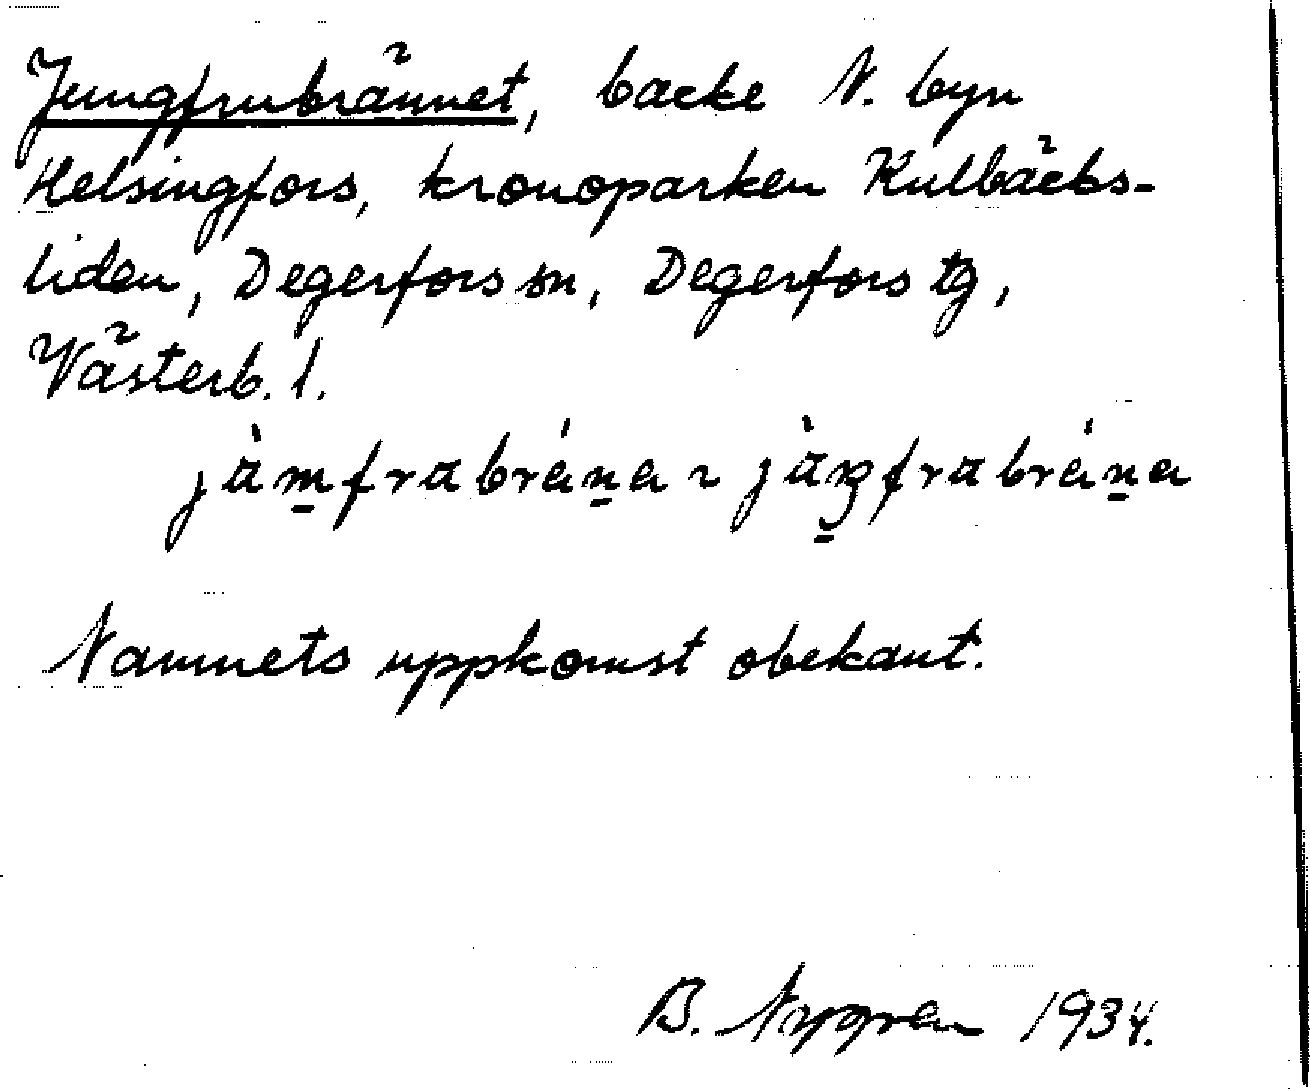 Jungfrubrännet, backe N. byn
Helsingfors, kronoparken Kulbäcks-
liden, Degerfors sn, Degerfors tg,
Västerb. l.
jàm̱frabráṉa ~ jàŋ̱frabráṉa
Namnets uppkomst obekant.
B. Nygren 1934.